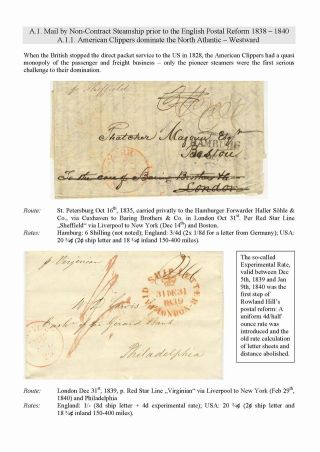 A.1. Mail by Non-Contract Steamship prior to the English Postal Reform 1838 – 1840
A.1.1. American Clippers dominate the North Atlantic – Westward
When the British stopped the direct packet service to the US in 1828, the American Clippers had a quasi
monopoly of the passenger and freight business – only the pioneer steamers were the first serious
challenge to their domination.
p Sheffield
Thatcher Magoun Esqr
HAMBURG
Boston
To the care of Baring Brothers &
London
Route: St. Petersburg Oct 16th, 1835, carried privatly to the Hamburger Forwarder Haller Söhle &
Co., via Cuxhaven to Baring Brothers & Co. in London Oct 31st. Per Red Star Line
„Sheffield“ via Liverpool to New York (Dec 14th) and Boston.
Rates: Hamburg: 6 Shilling (not noted); England: 3/4d (2x 1/8d for a letter from Germany); USA:
20 ¾¢ (2¢ ship letter and 18 ¾¢ inland 150-400 miles).
p Virginian
SHIP
31 DE 31
1839
LONDON
Cashier of the Girard Bank
Philadelphia
The so-called
Experimental Rate,
valid between Dec
5th, 1839 and Jan
9th, 1840 was the
first step of
Rowland Hill's
postal reform: A
uniform 4d/half
ounce rate was
introduced and the
old rate calculation
of letter sheets and
distance abolished.
Route: London Dec 31st, 1839, p. Red Star Line „Virginian“ via Liverpool to New York (Feb 29th,
1840) and Philadelphia
Rates: England: 1/- (8d ship letter + 4d experimental rate); USA: 20 ¾¢ (2¢ ship letter and
18 ¾¢ inland 150-400 miles).